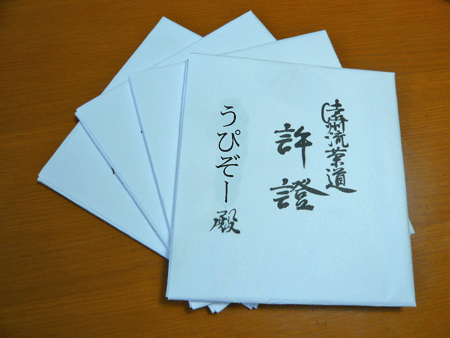 遠州流茶道
許證
うぴぞー殿